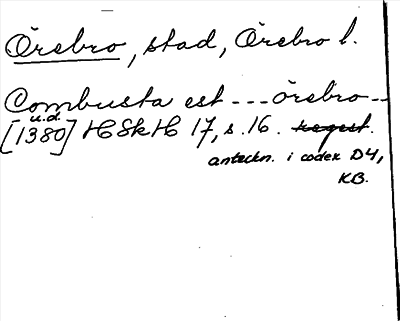 Örebro, stad, Örebro l.
Combusta est --- örebro --
u.d.
[1380] HSkH 17, s. 16. regest.
anteckn. i codex D4,
KB.